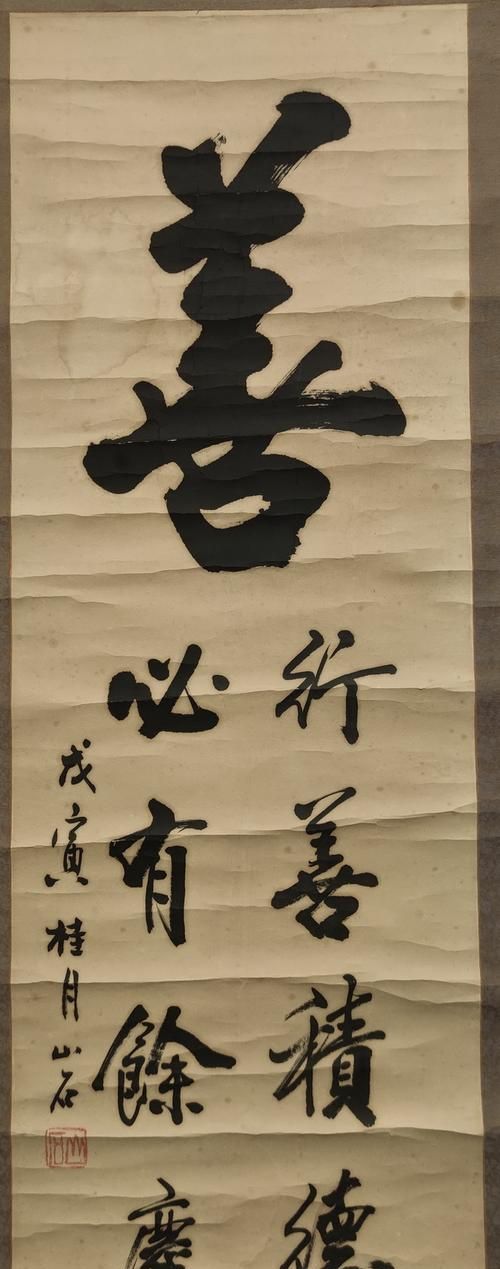 善
行善積德
必有餘慶
戊寅桂月山石
山石